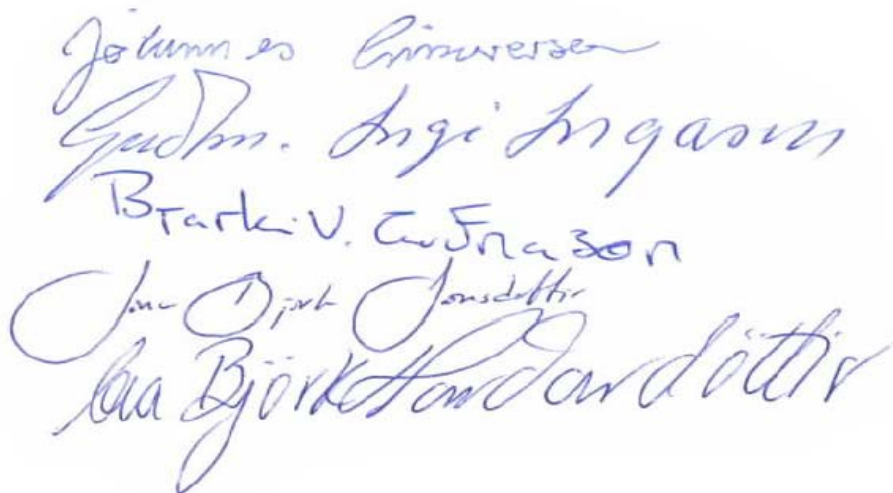 Jóhannes
Guðm. Ingi Ingason
Bjarki V. Guðnason
Jóna Björk Jónsdóttir
Eva Björk Harðardóttir